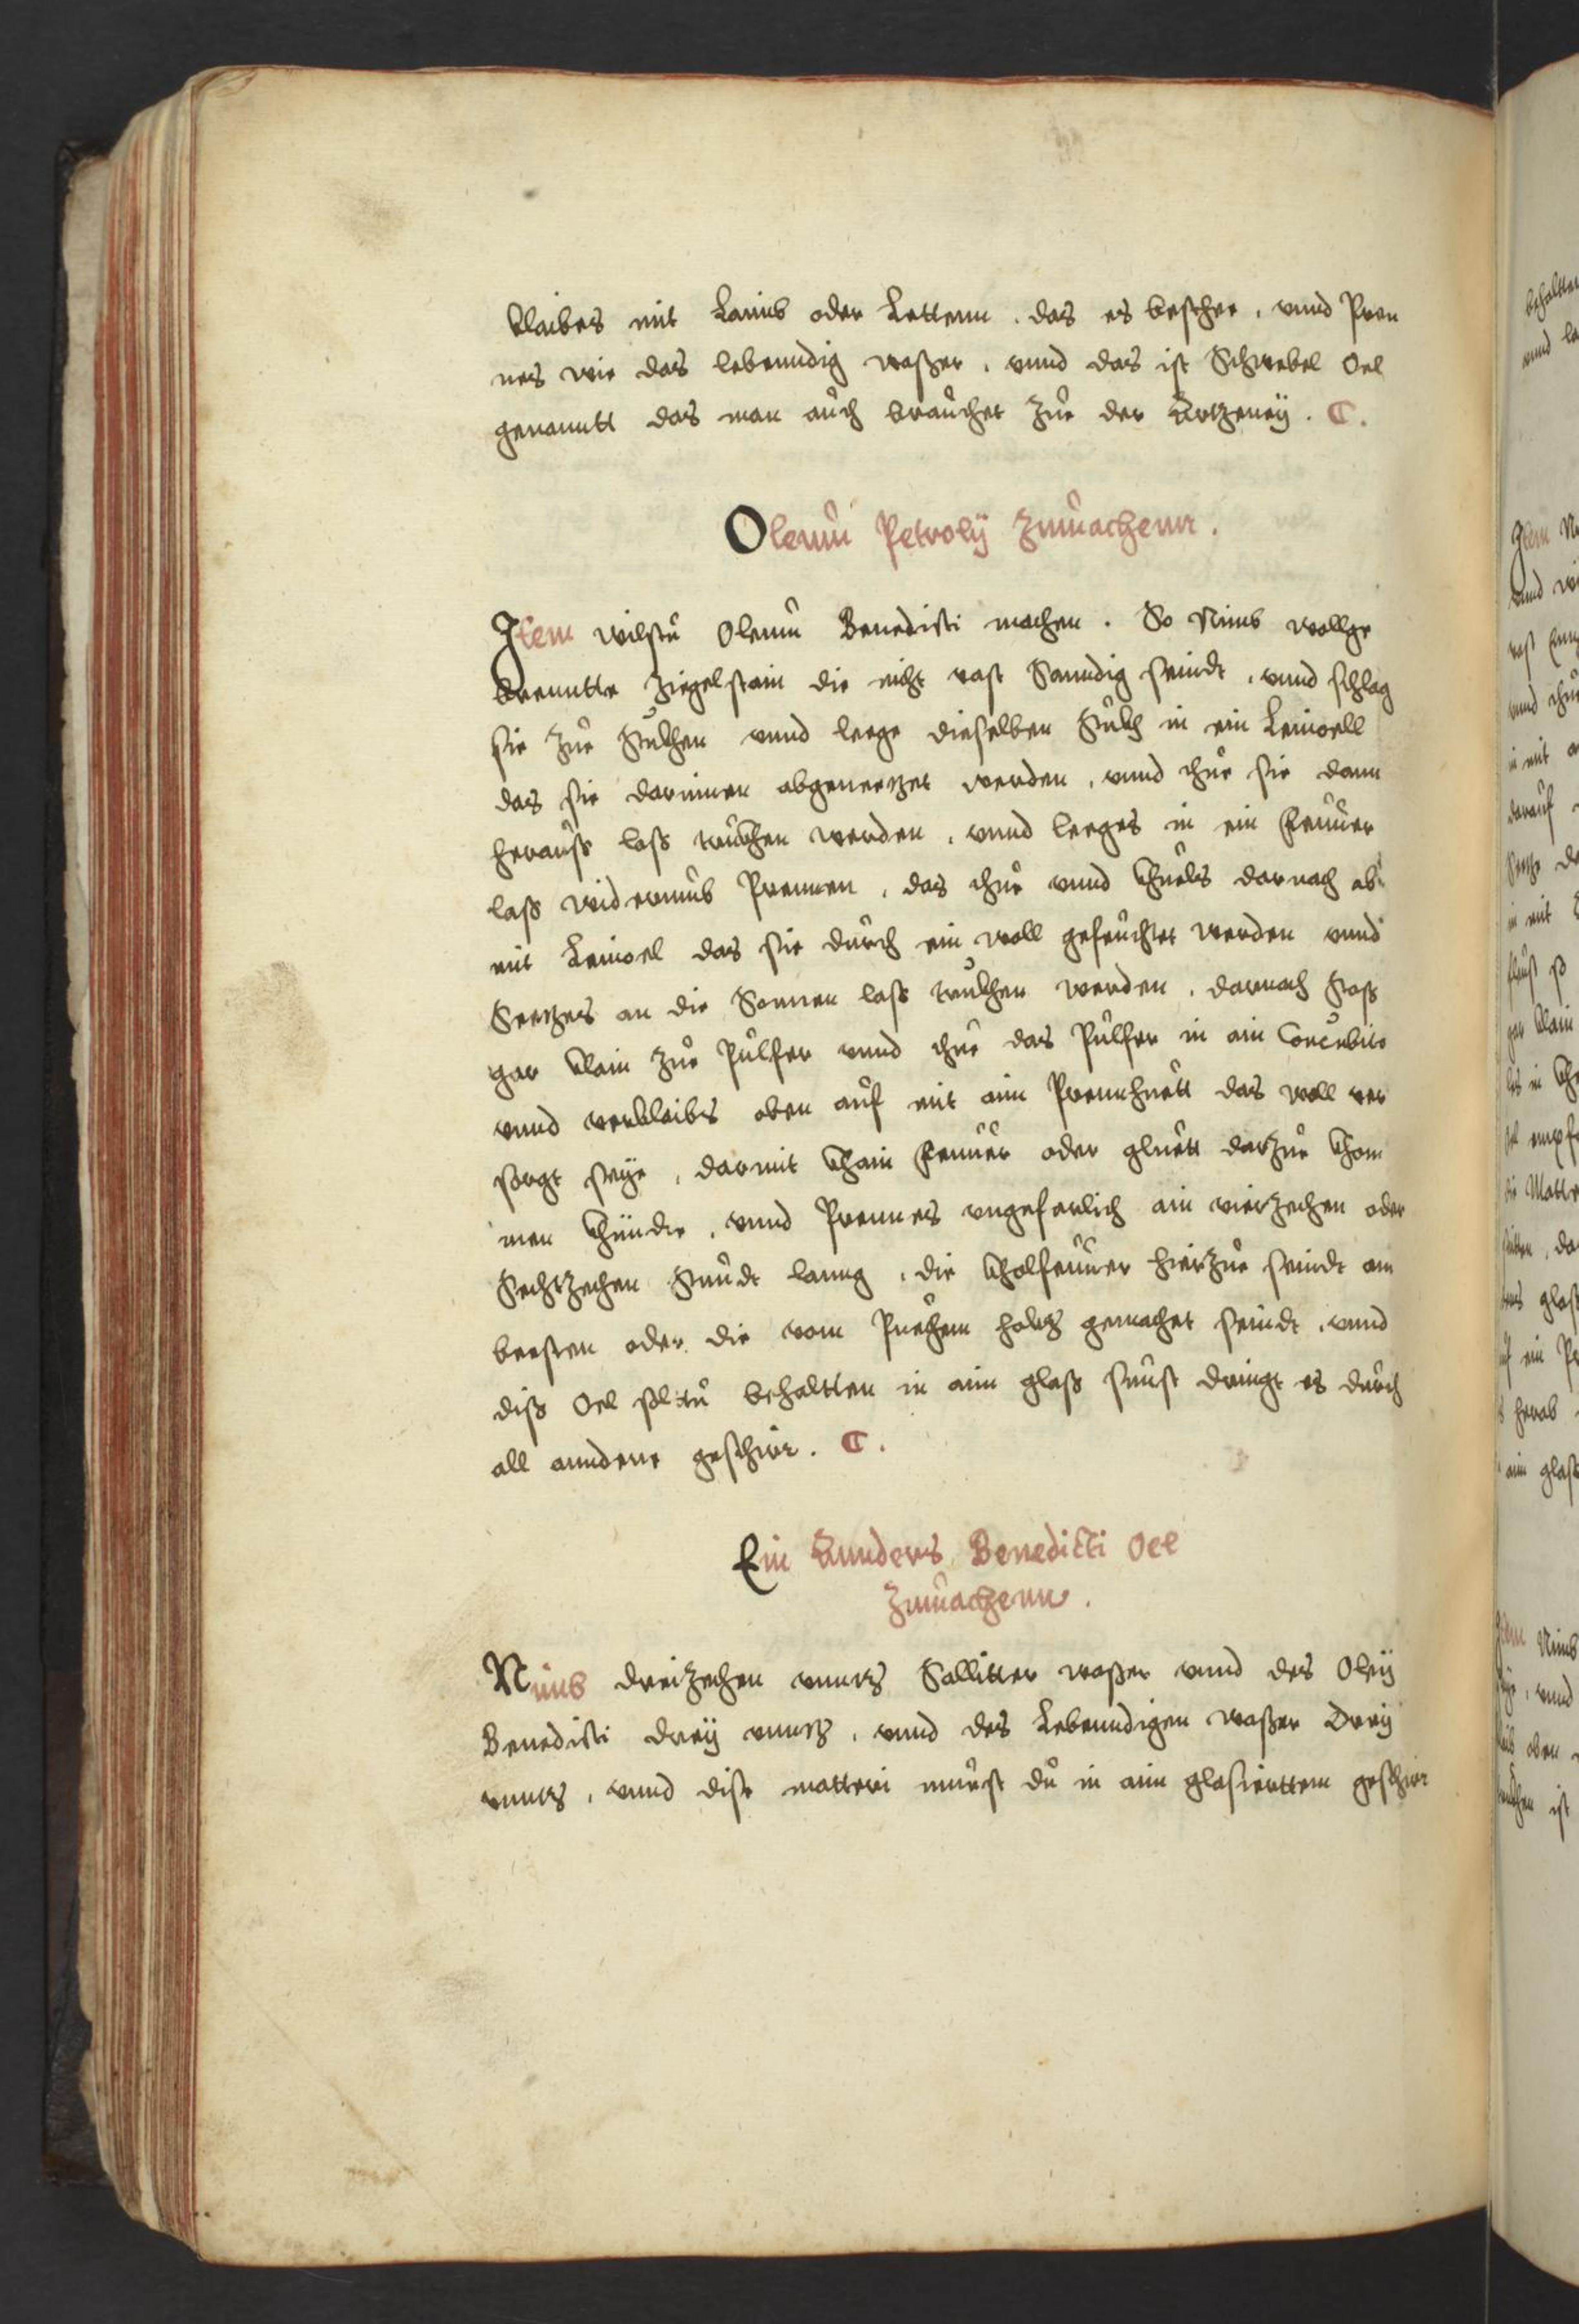 klaibes mit Laimb oder Lettenn . das es beschee , vnnd Pren
nes wie das lebenndig waßer , vnnd das ist Schwebel Oel
genanntt das man aůch braůchet Zůe der Artzeneÿ . C .
Oleum Petrolÿ Zmachenn .
Item wilstů Oleum Benedicti machen . So Nimb wollge
brenntte Ziegelstain die nicht vast Sanndig seindt , vnnd schlag
sie Zůe Stůkhen vnnd leege dieselben Stůkh in ein Leinoell
das sie darinnen abgeneetzet werden , vnnd thůe sie dann
heraůß laß trůckhen werden , vnnd leeges in ein Feuůer
laß widerumb Prennen , das thůe vnnd khüels darnach ab
mit Leinoel das sie důrch ein woll gefeůchtet werden vnnd
Seetzes an die Sonnen laß trůkhen werden , darnach Stoß
gar klain Zůe Půlfer vnnd thůe das Půlfer in ain Concůbito
vnnd verklaibs oben aůf mit aim Prennhuett das woll ver
sorgt seÿe , darmit khain Feuůer oder gluett darzůe khom
men khünde , vnnd Prennes vngeferlich ain vierzechen oder
Sechtzechen Stůndt lanng , die kholfeuůer hierzůe seindt am
beesten oder die vom Püechem holtz gemachet seindt , vnnd
diß Oel soltů behaltten in aim glaß sůnst dringt es důrch
all anndere geschirr . C .
Ein Annders Benedicti Oel
Zmachenn .
Nimb dreizechen vnntz Sallitter waßer vnnd des Oleÿ
Benedicti dreÿ vnntz , vnnd des Lebenndigen waßer Dreÿ
vnntz , vnnd dise matteri muest dů in aim glasierttem geschirr